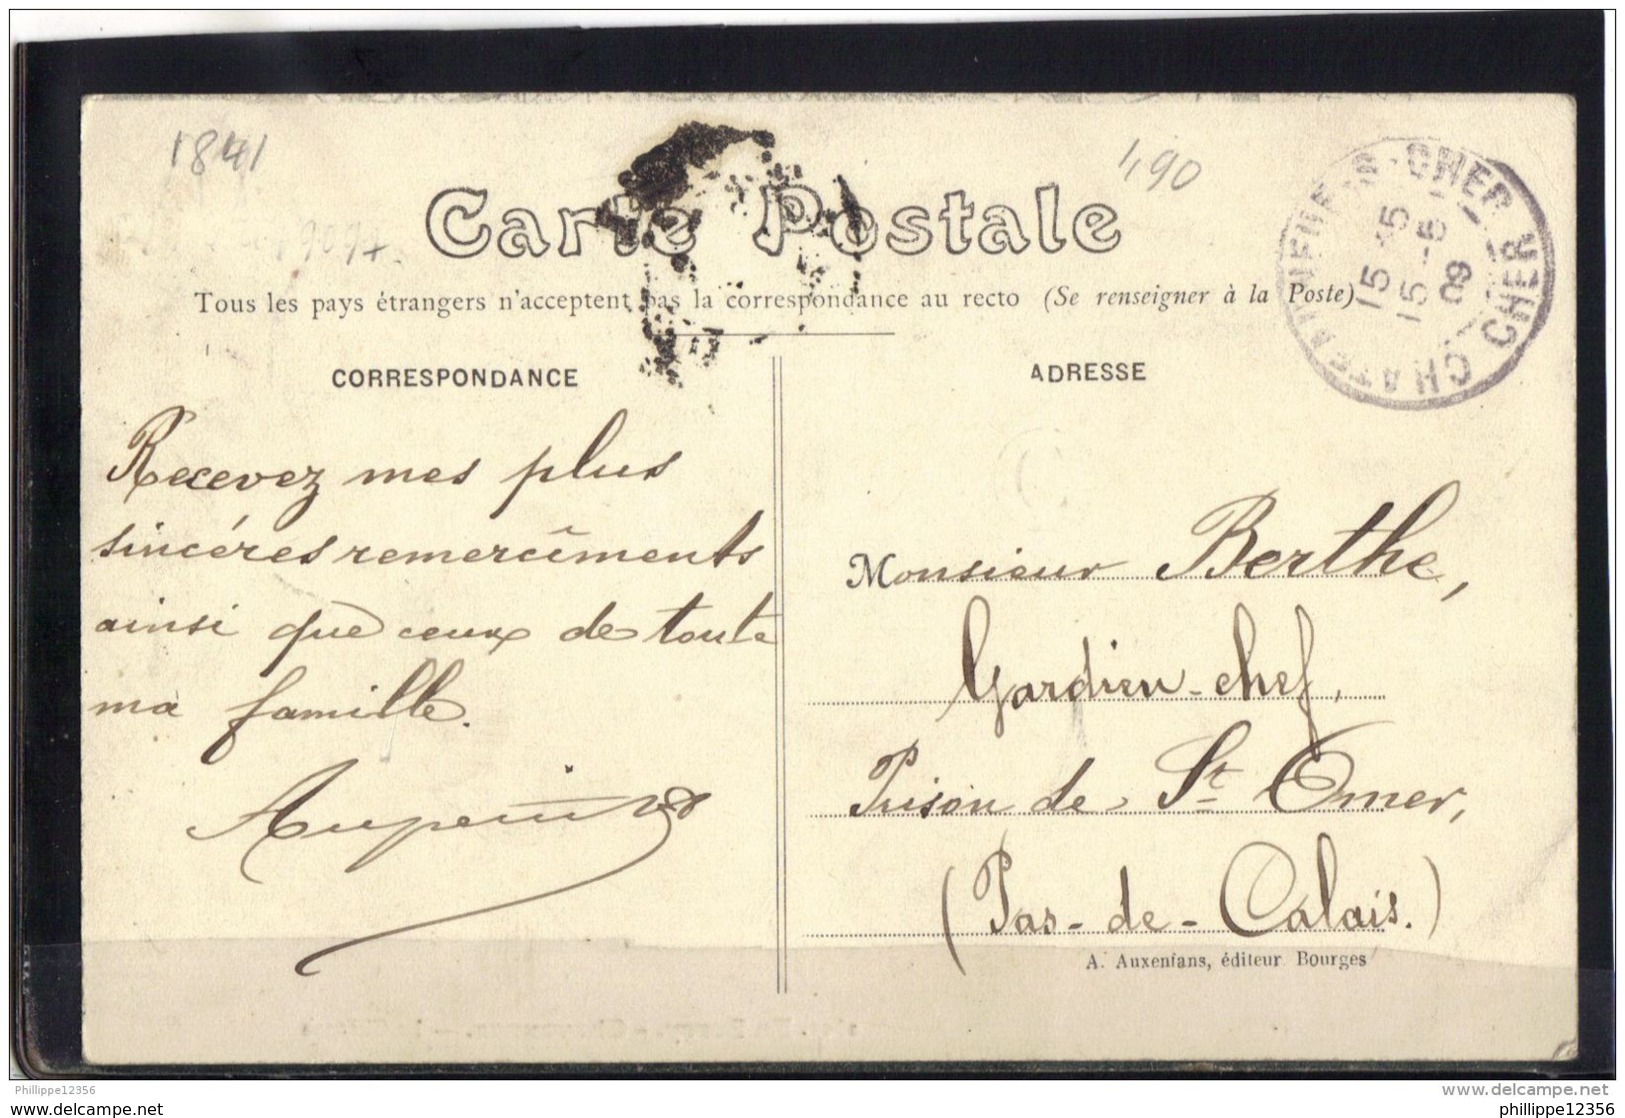 1841
490
Carte Postale
Tous les pays étrangers n'acceptent pas la correspondance au recto (Se renseigner à la Poste)
CHER CHER
15 -45
15 -5
09
CORRESPONDANCE
ADRESSE
Recevez mes plus
sincéres remercîments
ainsi que ceux de toute
ma famille.
Monsieur Berthe,
Gardien-chef,
Prison de St Omer,
(Pas-de-Calais.)
A. Auxenfans, éditeur Bourges
Philippe12356
delcampe.net
philippe12356
philippe12356